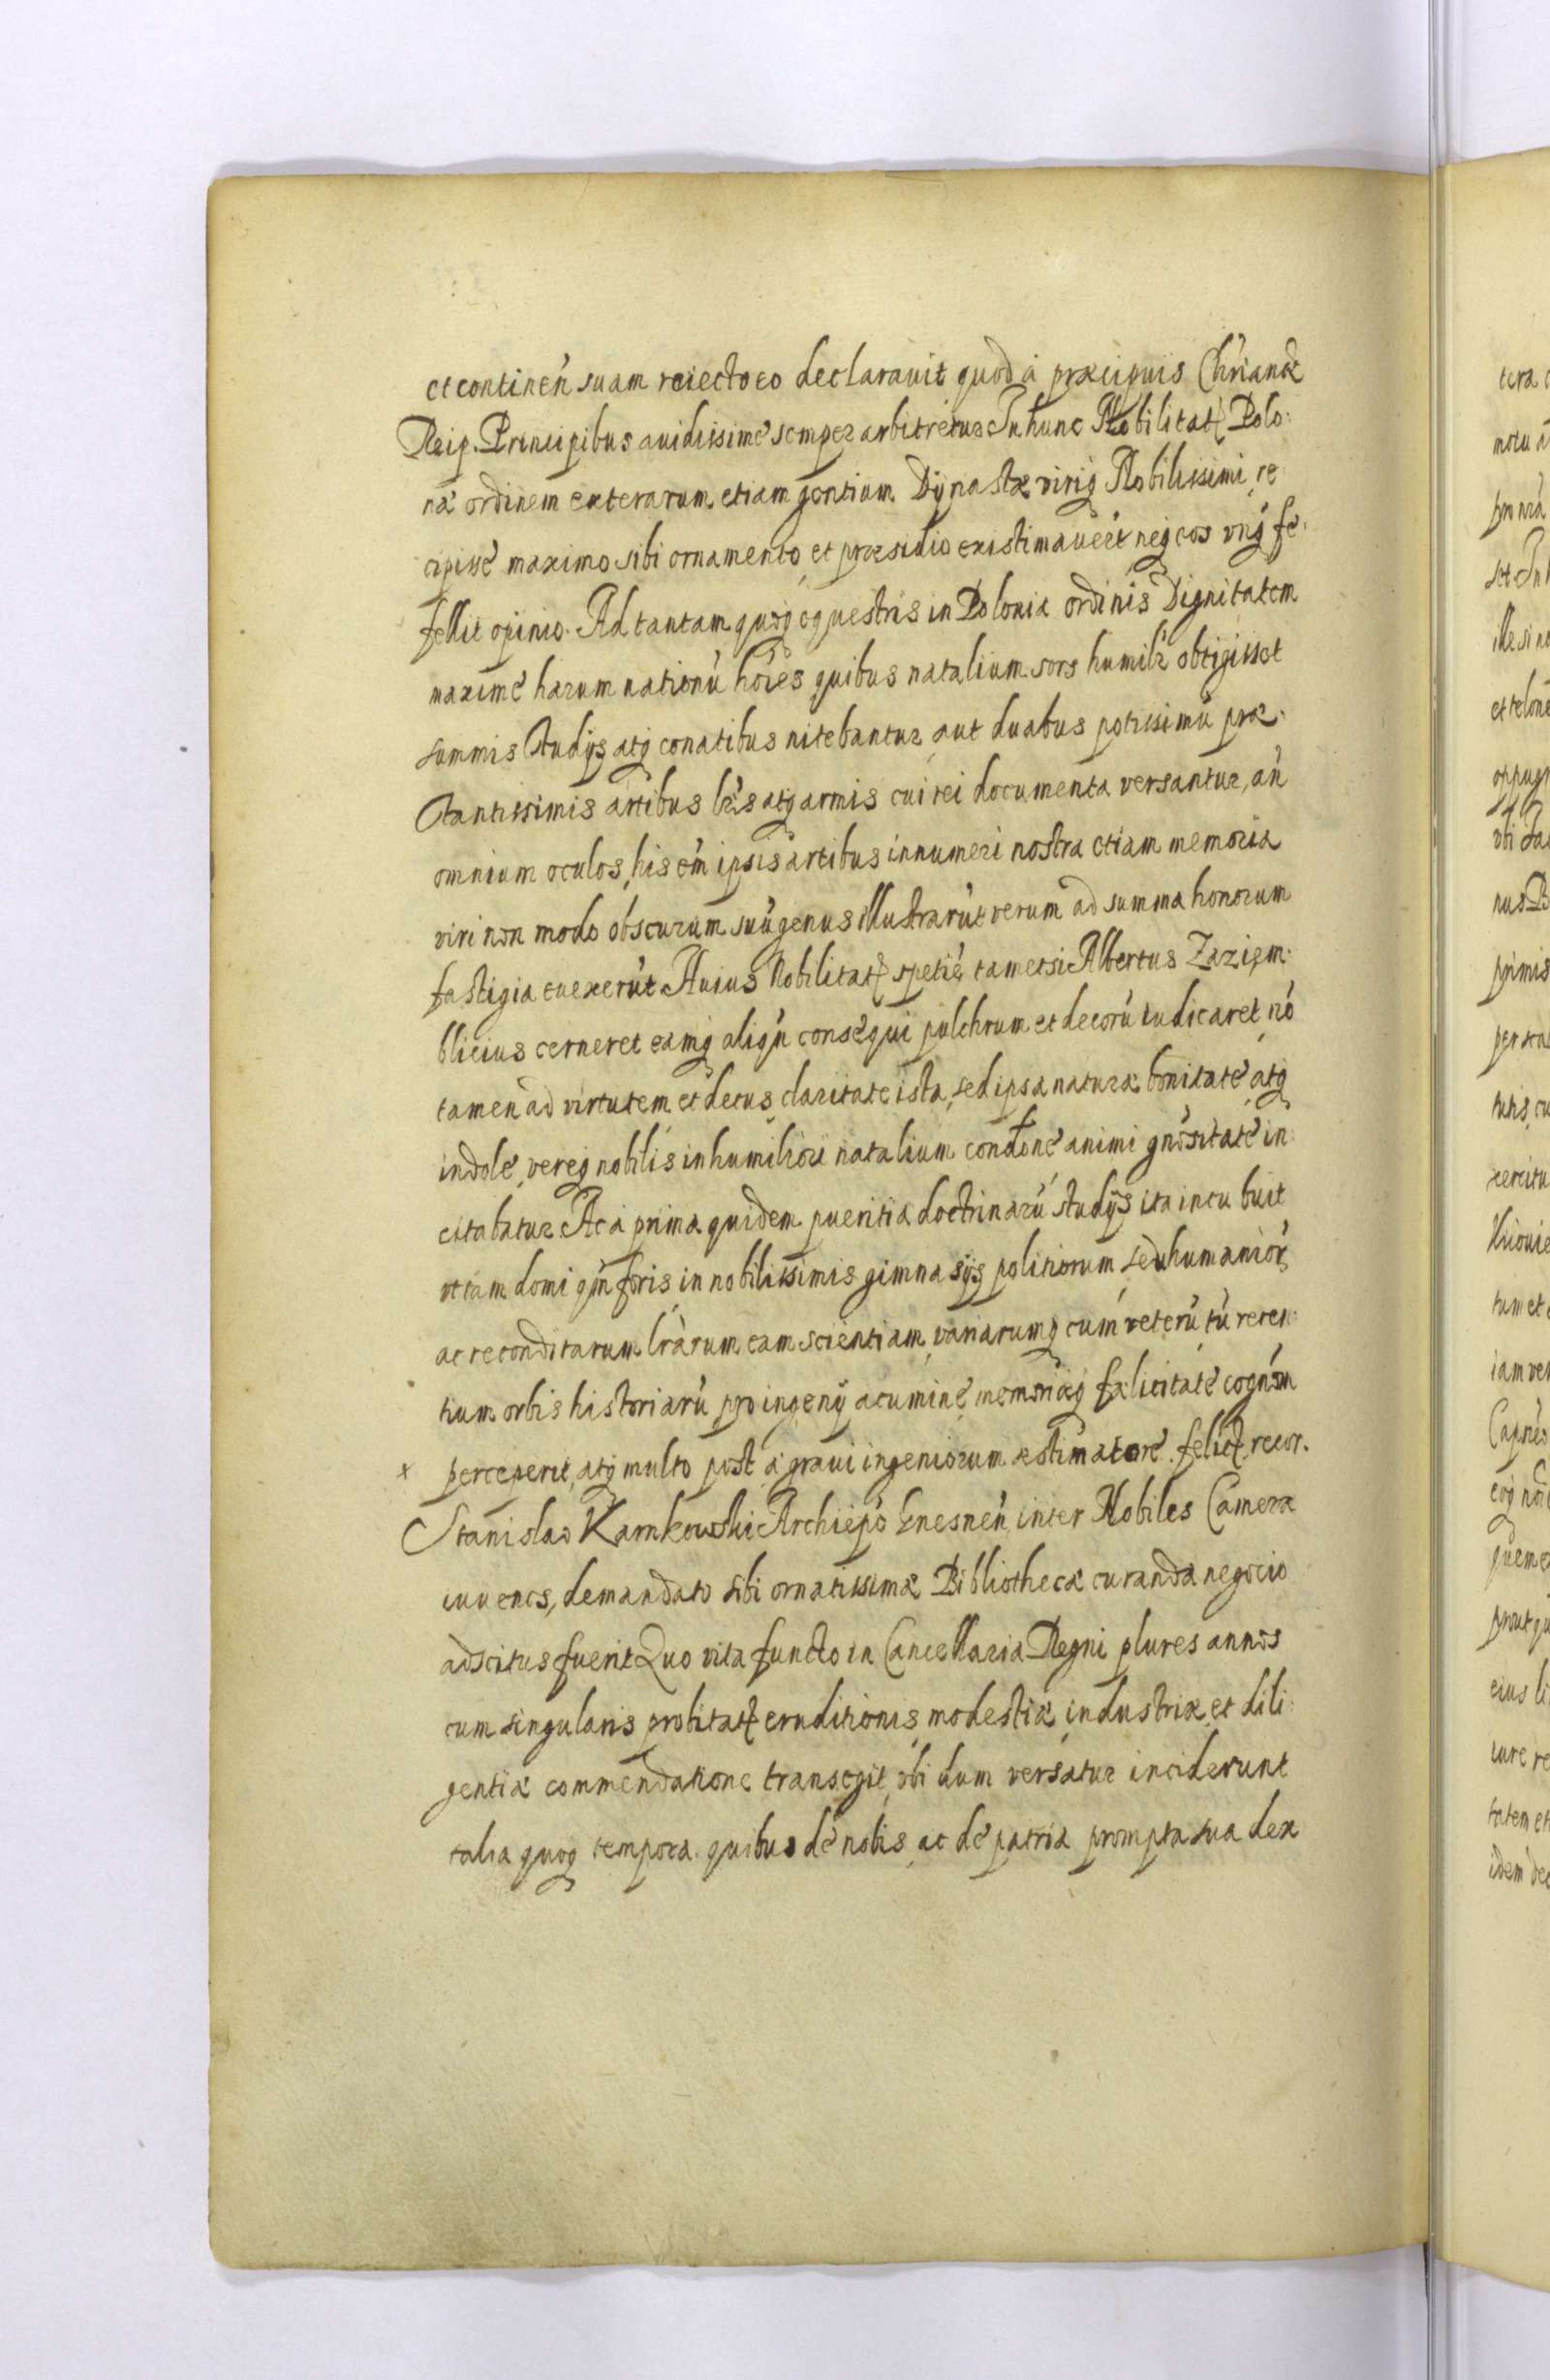 et contineń suam reiecto eo declarauit quod à præcipuis Chrianæ
Reip. Principibus auidissimè semper arbitretur In hunc Nobilitatꝭ Polo:
næ ordinem exterarum etiam gentium Dynastæ viriqꝫ Nobilissimi re
cipissè maximo sibi ornamento et præsidio existimaueŕt neqꝫ eos vnqꝫ fe:
fellit opinio. Ad tantam quoqꝫ equestris in Polonia ordinis Dignitatem
maximè harum nationú hoíes quibus natalium sors humilŕ obtigisset
summis studijs atqꝫ conatibus nitebantur aut duabus potissimú præ:
stantissimis artibus lŕis atqꝫ armis cui rei documenta versantur, ań
omnium oculos, his eḿ ipsis artibus innumeri nostra etiam memoria
viri non modo obscurum suú genus illustrarút verum ad summa honorum
fastigia euexerút Auius Nobilitatꝭ spetié tametsi Albertus Zaziem:
blicius cerneret eamqꝫ aliqń consequi pulchrum et decorú iudicaret nó
tamen ad virtutem et decus claritate ista, sed ipsa naturæ bonitate atqꝫ
indole, vereqꝫ nobilis in humiliori natalium condone animi gnositate in:
citabatur Ac à prima quidem pueritia doctrinarú studijs ita incubuit
vt tam domi qḿ foris in nobilissimis gimnasijs politiorum seu humaniorꝝ
ac reconditarum lrárum eam scientiam variarumqꝫ cum veterú tú recen:
tium orbis historiarú pro ingenij acumine memoriæqꝫ fælicitate cognóm
x perceperit atqꝫ multo post à graui ingeniorum æstimatore felicꝭ recor.
Stanislao Karnkowski Archiepó Gnesneń inter Nobiles Cameræ
iuuenes, demandato sibi ornatissimæ Bibliothecæ curandæ negocio
adscitus fuerit Quo vita functo in Cancellaria Regni plures annos
cum singularis probitatꝭ eruditionis modestiæ industriæ et dili:
gentiæ commendatione transegit vbi dum versatur inciderunt
talia quoqꝫ tempora quibus de nobis ac de patria prompta sua dex